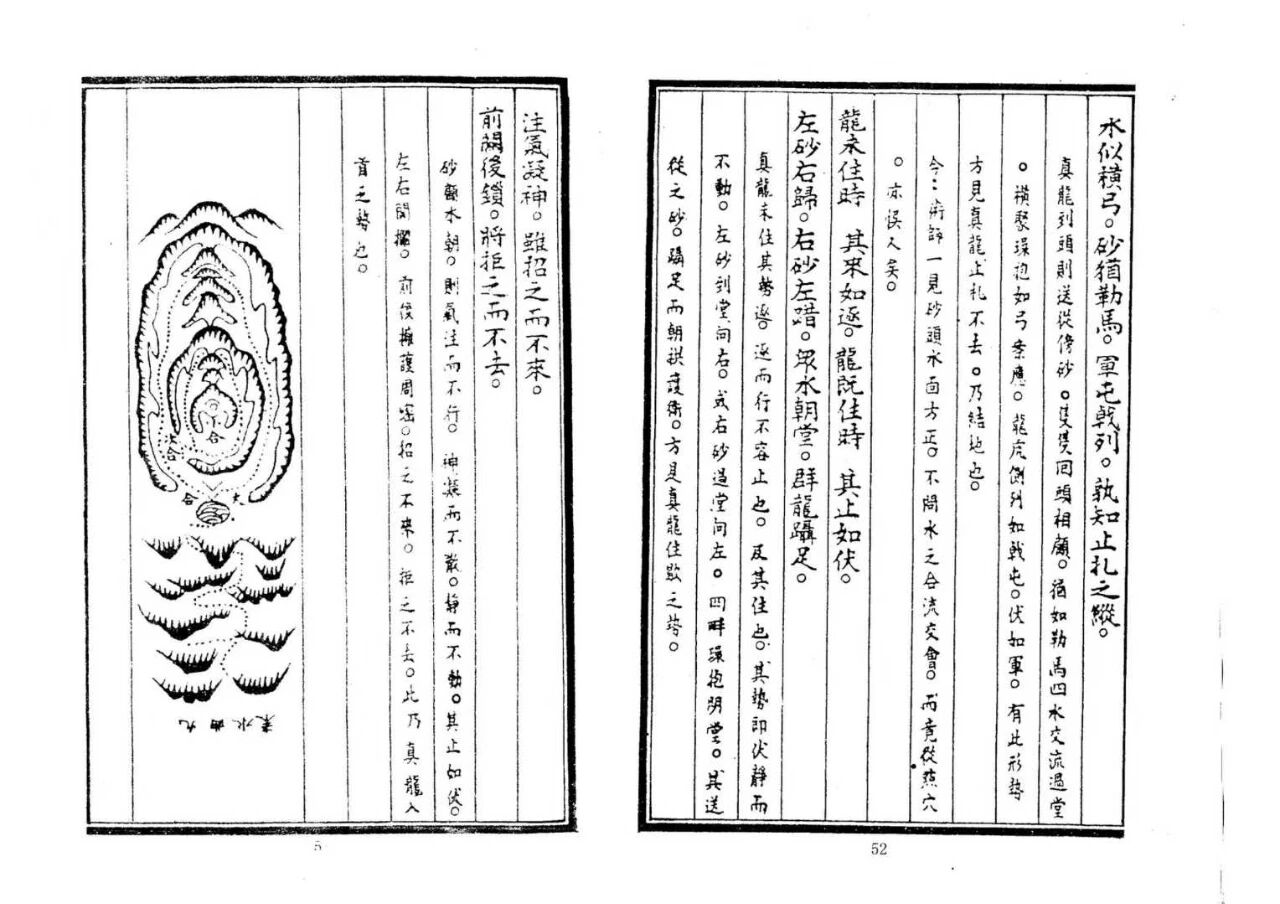 水似橫弓。砂猶勒馬。軍屯戟列。孰知止札之縱。
真龍到頭則送從傍砂。隻隻回頭相顧。猶如勒馬四水交流過堂
。橫聚環抱如弓案應。龍虎側列如戟屯。伏如軍。有此形勢
方見真龍止札不去。乃結地也。
今：術師一見砂頭水面方正。不問水之合流交會。而竟從點穴
。亦悮人矣。
龍未住時　其來如逐。龍既住時　其止如伏。
左砂右歸。右砂左踏。眾水朝堂。群龍躡足。
真龍未住其勢逐。逐而行不容止也。及其住也。其勢即伏靜而
不動。左砂到堂向右。或右砂過堂向左。四畔環抱明堂。其送
從之砂。躡足而朝拱護衛。方是真龍住歇之勢。
52
注氣凝神。雖招之而不來。
前關後鎖。將拒之而不去。
砂顧水朝。則氣注而不行。神凝而不散。靜而不動。其止如伏。
左右關攔。前後擁護周密。招之不來。拒之不去。此乃真龍入
首之勢也。
合
大合
大合
九曲水来
5